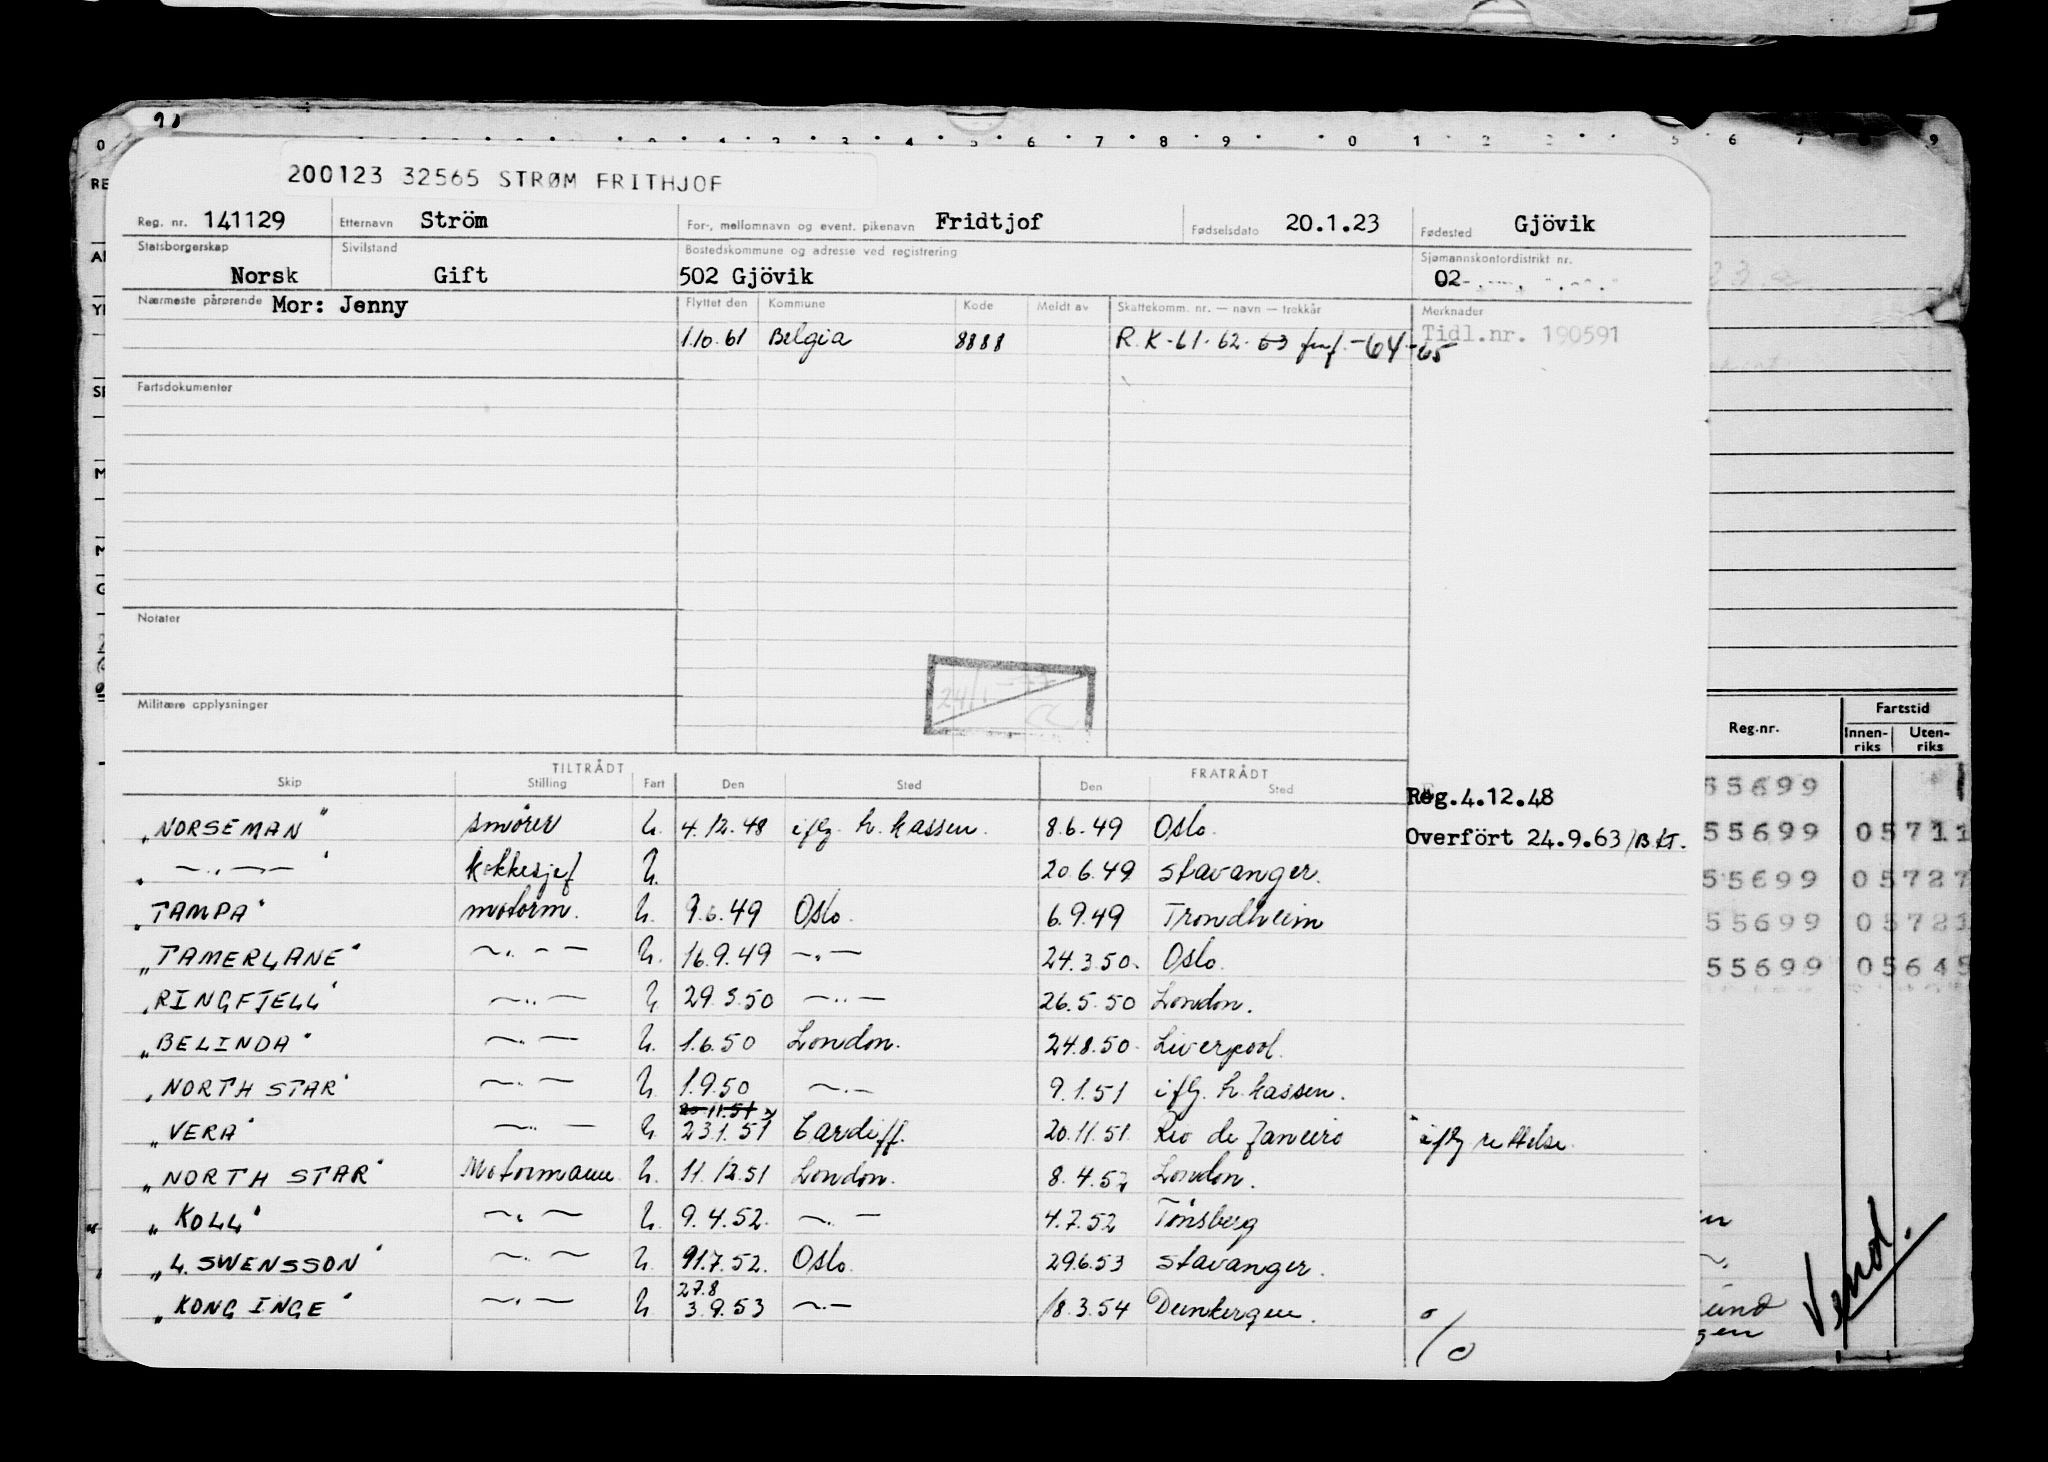 200123 32565 STRØM FRITHJOF
Reg. nr. 141129 Etternavn Ström For-, mellomnavn og event. pikenavn Fridtjof Fødselsdato 20.1.23 Fødested Gjövik
Statsborgerskap Sivilstand Bostedskommune og adresse ved registrering Sjømannskontordistrikt nr.
Norsk Gift 502 Gjövik 02
Nærmeste pårørende Mor: Jenny Flyttet den Kommune Kode Meldt av Skattekomm. nr. — navn — trekkår Merknader
1.10.61 Belgia 8888 R.K-61-62-63 -64-65 Tidl.nr. 190591
Fartsdokumenter
Notater
24/1
Militære opplysninger
Reg.nr. Fartstid
Innen-riks Uten-riks
TILTRÅDT FRATRÅDT
Skip Stilling Fart Den Sted Den Sted
55699
Reg.4.12.48
"NORSEMAN" smörer U. 4.12.48 iflg. h. kassen. 8.6.49 Oslo. Overfört 24.9.63/BKT.
55699 05711
" —.,—.— " kokkesjef U. 20.6.49 Stavanger.
55699 05727
"TAMPA" motorm. U. 9.6.49 Oslo. 6.9.49 Trondheim
55699 05721
"TAMERLANE" —.. — — U. 16.9.49 —.— 24.3.50. Oslo.
55699 05645
"RINGFJELL" —..— U 29.3.50 —..— 26.5.50 London.
"BELINDA" —.— U. 1.6.50 London. 24.8.50. Liverpool.
"NORTH STAR" —.— U. 1.9.50 —.— 9.1.51 iflg. h. kassen.
20.11.51
"VERA" —..— U 23.1.51 Cardiff. 20.11.51. Rio de Janeiro " iflg rettelse.
"NORTH STAR" Motormann U. 11.12.51 London. 8.4.52 London.
"KOLL" —.— U. 9.4.52. —.— 4.7.52 Tönsberg
"L. SWENSSON" —.— U. 11.7.52. Oslo. 29.6.53 Stavanger.
27.8
"KONG INGE" —.— U. 3.9.53 —.— 18.3.54 Dunkerque. %
Vend.